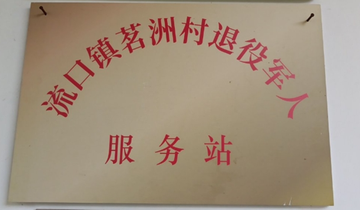 流口镇茗洲村退役军人
服务站